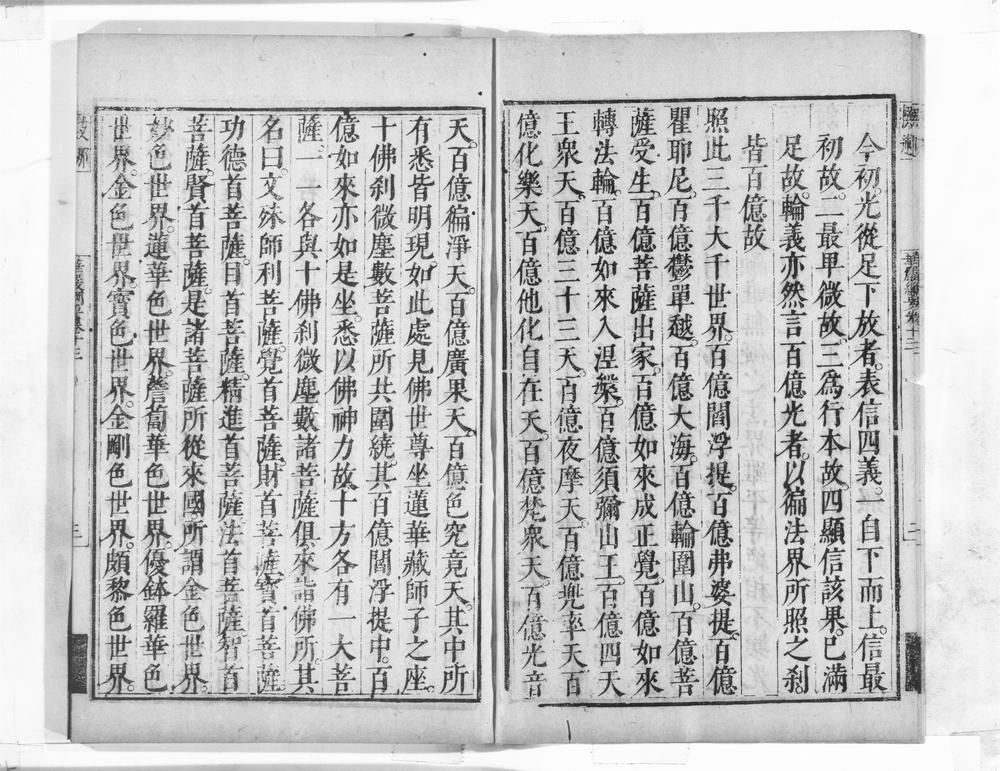 今初。光從足下放者。表信四義。一自下而上。信最
初故。二最卑微故。三為行本故。四顯信該果。已滿
足故。輪義亦然。言百億光者。以徧法界所照之剎。
皆百億故
照此三千大千世界。百億閻浮提。百億弗婆提。百億
瞿耶尼。百億鬱單越。百億大海。百億輪圍山。百億菩
薩受生。百億菩薩出家。百億如來成正覺。百億如來
轉法輪。百億如來入涅槃。百億須彌山王。百億四天
王衆天。百億三十三天。百億夜摩天。百億兜率天。百
億化樂天。百億他化自在天。百億梵衆天。百億光音
天。百億徧淨天。百億廣果天。百億色究竟天。其中所
有悉皆明現。如此處見佛世尊坐蓮華藏師子之座。
十佛刹微塵數菩薩所共圍繞。其百億閻浮提中。百
億如來亦如是坐。悉以佛神力故。十方各有一大菩
薩。一一各與十佛刹微塵數諸菩薩俱。來詣佛所。其
名曰。文殊師利菩薩。覺首菩薩。財首菩薩。寶首菩薩。
功德首菩薩。目首菩薩。精進首菩薩。法首菩薩。智首
菩薩。賢首菩薩。是諸菩薩所從來國。所謂金色世界。
妙色世界。蓮華色世界。薝蔔華色世界。優鉢羅華色
世界。金色世界。寶色世界。金剛色世界。頗黎色世界。